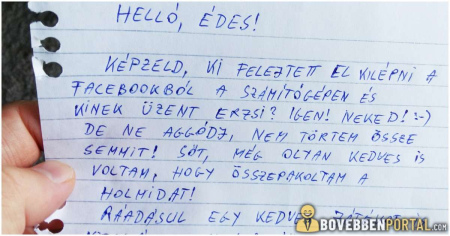 HELLÓ, ÉDES!
KÉPZELD, KI FELEJTETT EL KILÉPNI A
FACEBOOKBÓL A SZÁMÍTÓGÉPEN ÉS
KINEK ÜZENT ERZSI? IGEN! NEKED! :-)
DE NE AGGÓDJ, NEM TÖRTEM ÖSSZE
SEMMIT! SŐT, MÉG OLYAN KEDVES IS
VOLTAM, HOGY ÖSSZEPAKOLTAM A
HOLMIDAT!
RÁADÁSUL EGY KEDVES
BOVEBBENPORTAL.COM